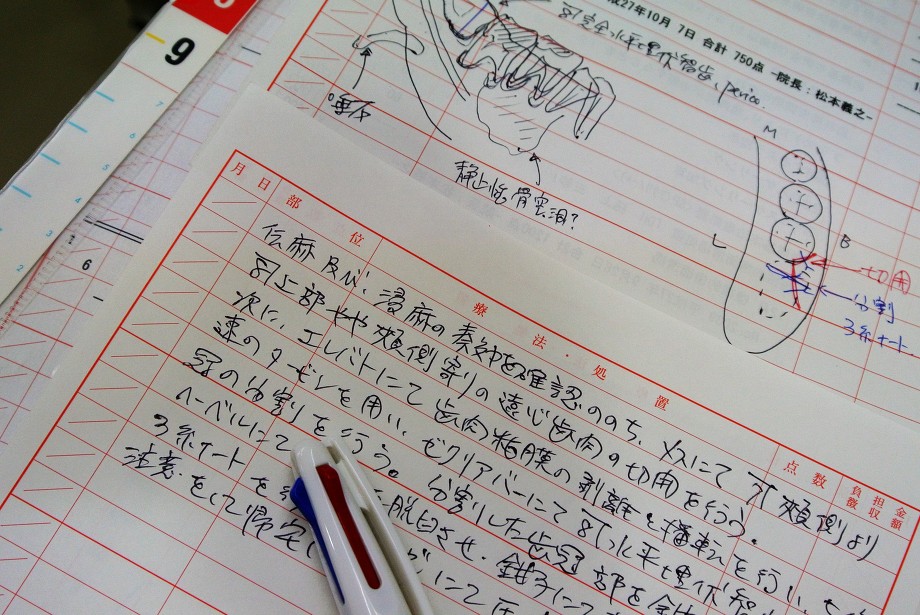 9
7
6
5
4
3
2
6
成27年10月 7日 合計 750点 -院長:松本義之-
完全水平埋伏智歯、perico.
静止性骨空洞?
M
L
B
切開
分割
3糸ナート
月 日
部 位
療 法 ・ 処 置
点 数
負担金
徴収額
伝麻及び、浸麻の奏効を確認ののち、メスにて 頬側より
上部やや頬側寄りの遠心歯肉の切開を行う。
次に、エレバトにて歯肉粘膜の剥離と翻転を行い、
速のタービンを用い、ゼクリアバーにて 水平埋伏智
冠の分割を行う。分割した歯冠部を
ヘーベルにて 脱臼させ、鉗子にて
3糸ナート を
注意をして帰宅 にて